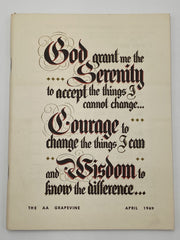 God grant me the
Serenity
to accept the things I
cannot change...
Courage to
change the things I can
and Wisdom to
know the difference...
THE AA GRAPEVINE APRIL 1969